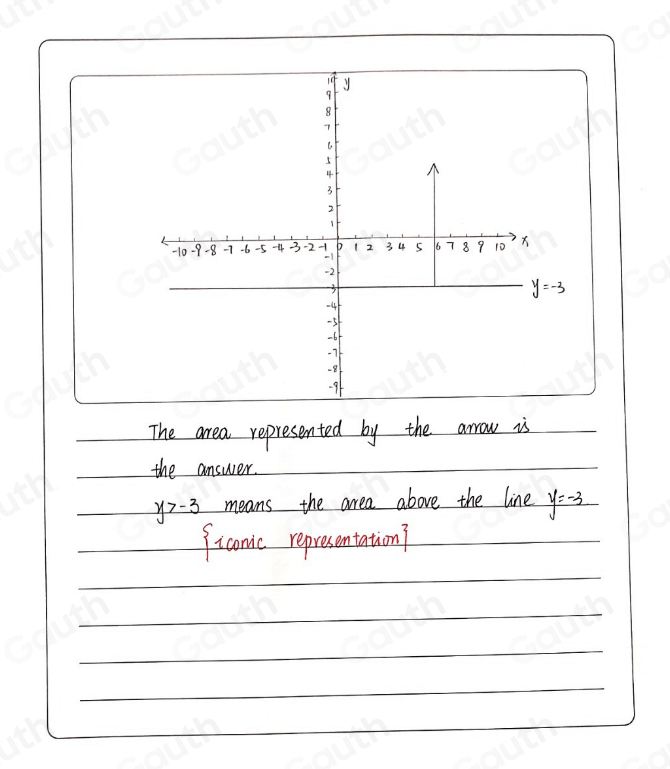 y
10
9
8
7
6
5
4
3
2
1
-10 -9 -8 -7 -6 -5 -4 -3 -2 -1 0 1 2 3 4 5 6 7 8 9 10 x
-1
-2
-3
y=-3
-4
-5
-6
-7
-8
-9
The area represented by the arrow is
the answer.
y>-3 means the area above the line y=-3.
{iconic representation}
Gauth